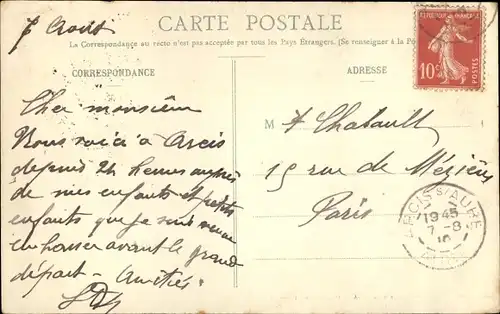 7 Août
CARTE POSTALE
La Correspondance au recto n'est pas acceptée par tous les Pays Étrangers. (Se renseigner à la Po
CORRESPONDANCE
ADRESSE
REPUBLIQUE FRANÇAISE
10c
POSTES
Cher monsieur
Nous voici à Arcis
depuis 24 heures auprès
de mes enfants et petits
enfants que je suis venue
embrasser avant le grand
départ - Amitiés
M
Chabault
15 rue de Mézières
Paris
ARCIS S/ AUBE
1945
7 - 8
10
AUBE